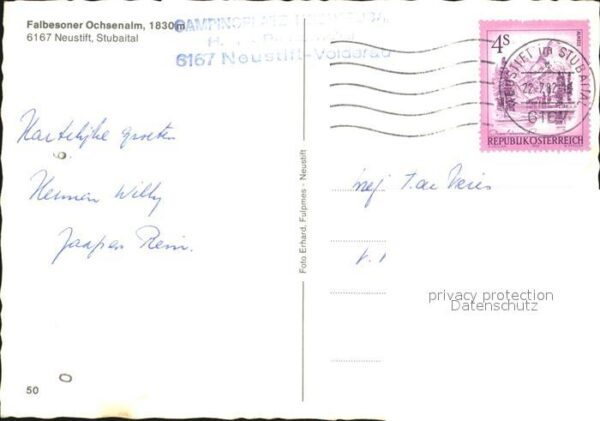 Falbesoner Ochsenalm, 1830 m
6167 Neustift, Stubaital
CAMPINGPLATZ
6167 Neustift-Volderau
4S
REPUBLIK ÖSTERREICH
NEUSTIFT im STUBAITAL
6167
Hartelijke groeten
Herman Willy
Jaap en Rein.
mej. T. de Vries
Foto Erhard, Fulpmes - Neustift
privacy protection
Datenschutz
50